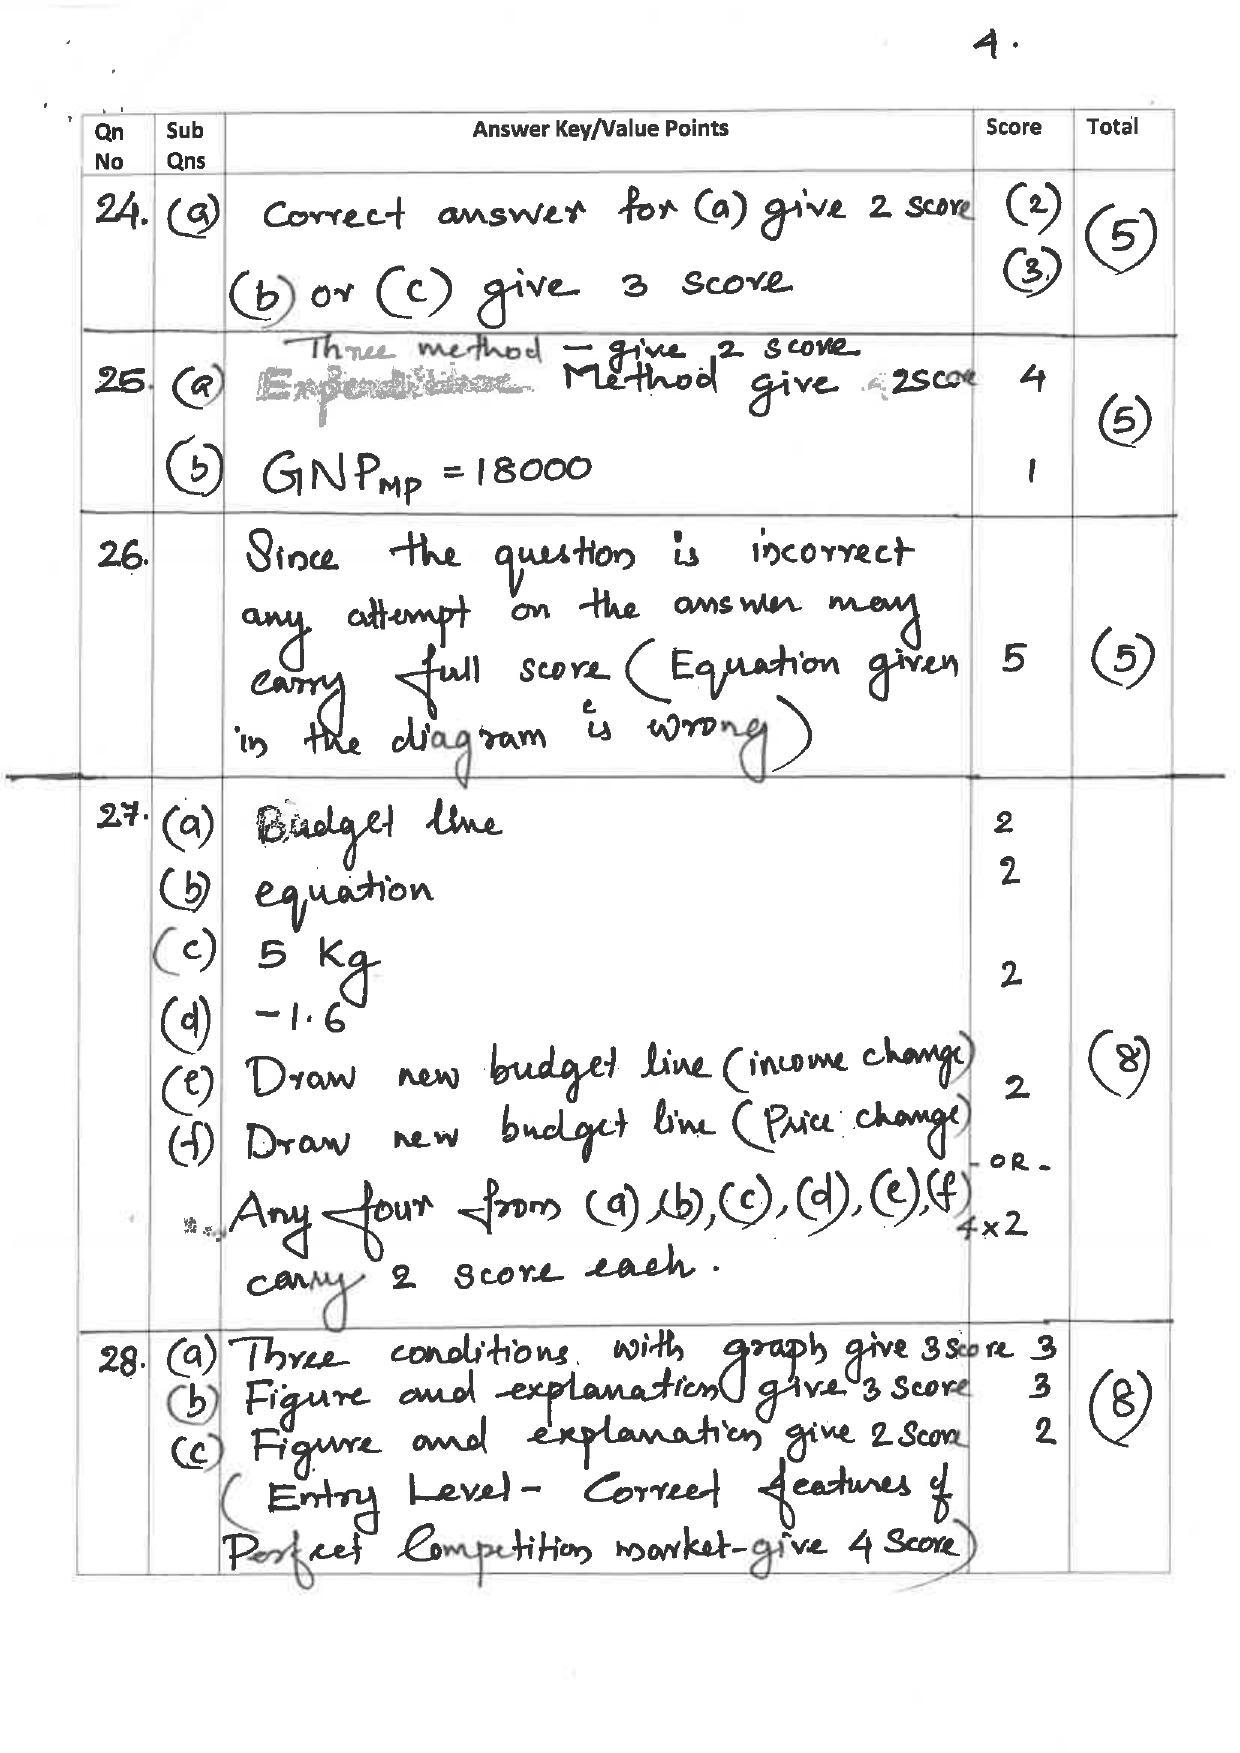 4.
Qn No Sub Qns Answer Key/Value Points Score Total
24. (a) Correct answer for (a) give 2 score (2) (5)
(b) or (c) give 3 score (3)
Three method - give 2 score
25. (a) Expenditure Method give 2 score 4 (5)
(b) GNPMP = 18000 1
26. Since the question is incorrect
any attempt on the answer may
carry full score (Equation given 5 (5)
in the diagram is wrong)
27. (a) Budget line 2
(b) equation 2
(c) 5 Kg 2
(d) -1.6
(e) Draw new budget line (income change) 2 (8)
(f) Draw new budget line (Price change)
- OR -
Any four from (a), (b), (c), (d), (e), (f) 4x2
carry 2 score each.
28. (a) Three conditions with graph give 3 Score 3
(b) Figure and explanation give 3 Score 3 (8)
(c) Figure and explanation give 2 Score 2
(Entry Level - Correct features of
Perfect Competition market - give 4 Score)